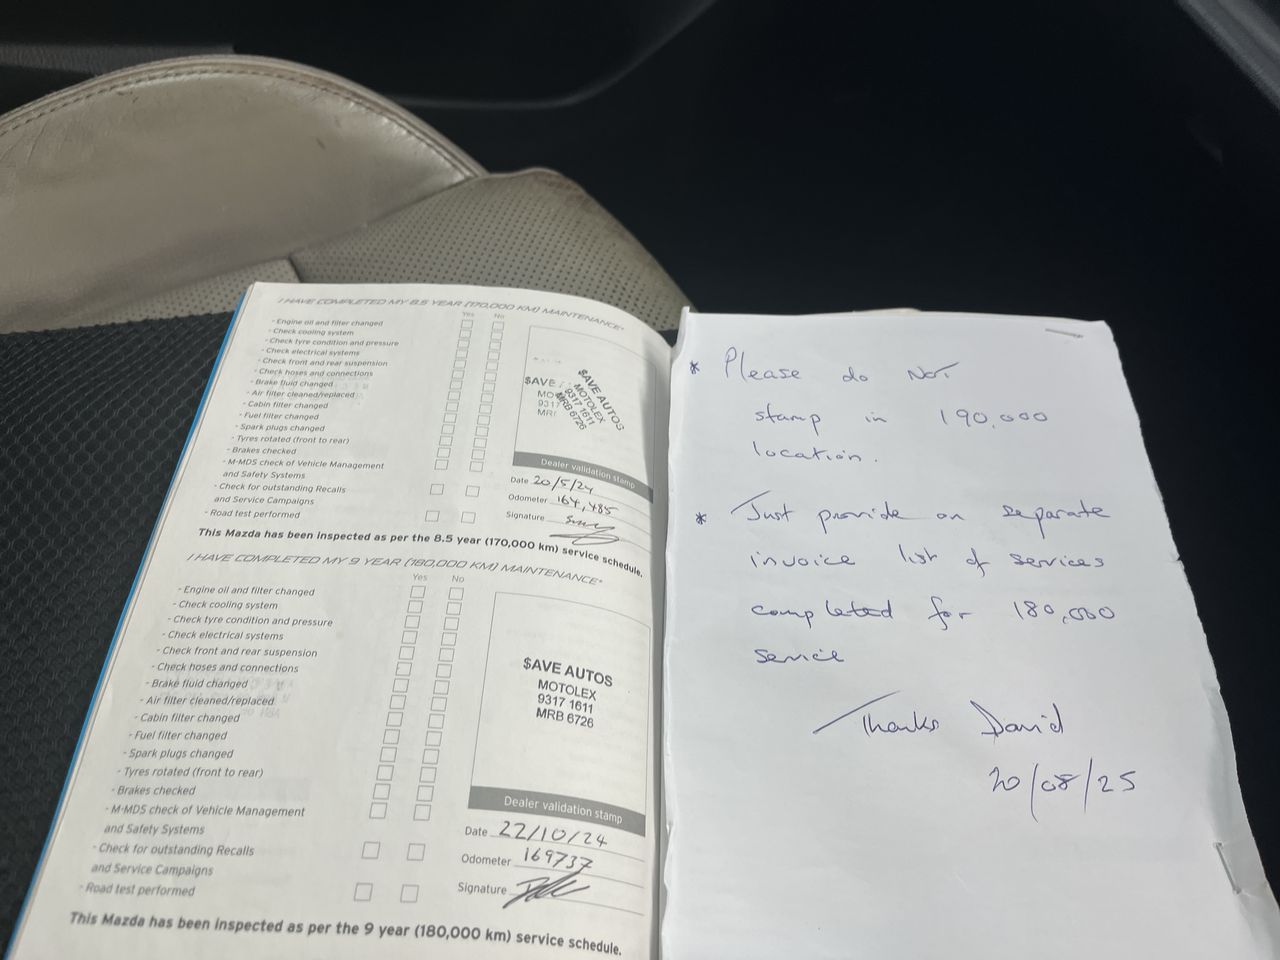 I HAVE COMPLETED MY 8.5 YEAR (170,000 KM) MAINTENANCE*
Yes No
- Engine oil and filter changed
- Check cooling system
- Check tyre condition and pressure
- Check electrical systems
- Check front and rear suspension
- Check hoses and connections
- Brake fluid changed
- Air filter cleaned/replaced
- Cabin filter changed
- Fuel filter changed
- Spark plugs changed
- Tyres rotated (front to rear)
- Brakes checked
- M-MDS check of Vehicle Management
and Safety Systems
- Check for outstanding Recalls
and Service Campaigns
- Road test performed
$AVE AUTOS
MOTOLEX
9317 1611
MRB 6726
Dealer validation stamp
Date 20/5/24
Odometer 164,485
Signature
This Mazda has been inspected as per the 8.5 year (170,000 km) service schedule.
I HAVE COMPLETED MY 9 YEAR (180,000 KM) MAINTENANCE*
Yes No
- Engine oil and filter changed
- Check cooling system
- Check tyre condition and pressure
- Check electrical systems
- Check front and rear suspension
- Check hoses and connections
- Brake fluid changed
- Air filter cleaned/replaced
- Cabin filter changed
- Fuel filter changed
- Spark plugs changed
- Tyres rotated (front to rear)
- Brakes checked
- M-MDS check of Vehicle Management
and Safety Systems
- Check for outstanding Recalls
and Service Campaigns
- Road test performed
$AVE AUTOS
MOTOLEX
9317 1611
MRB 6726
Dealer validation stamp
Date 22/10/24
Odometer 169737
Signature
This Mazda has been inspected as per the 9 year (180,000 km) service schedule.
* Please do Not
stamp in 190,000
location.
* Just provide on separate
invoice list of services
completed for 180,000
service
Thanks David
20/08/25